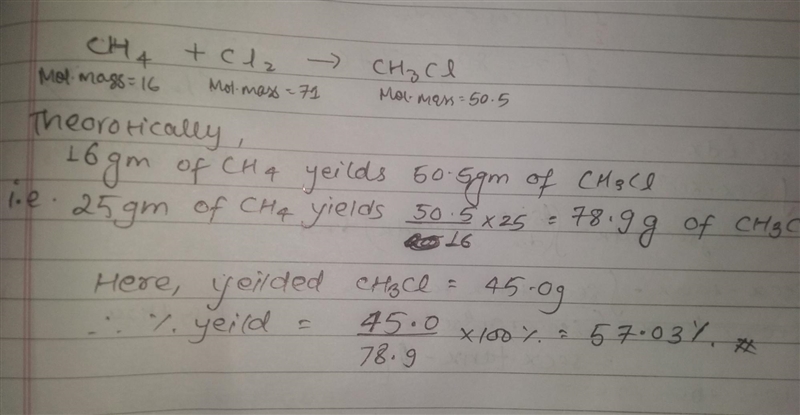 CH4 + Cl2 → CH3Cl
Mol.mass=16 Mol.mass=71 Mol.mass=50.5
Theorotically,
16gm of CH4 yeilds 50.5gm of CH3Cl
i.e. 25gm of CH4 yields 50.5/16 ×25 = 78.9g of CH3C
Here, yeilded CH3Cl = 45.0g
∴ % yeild = 45.0/78.9 ×100% = 57.03%. #